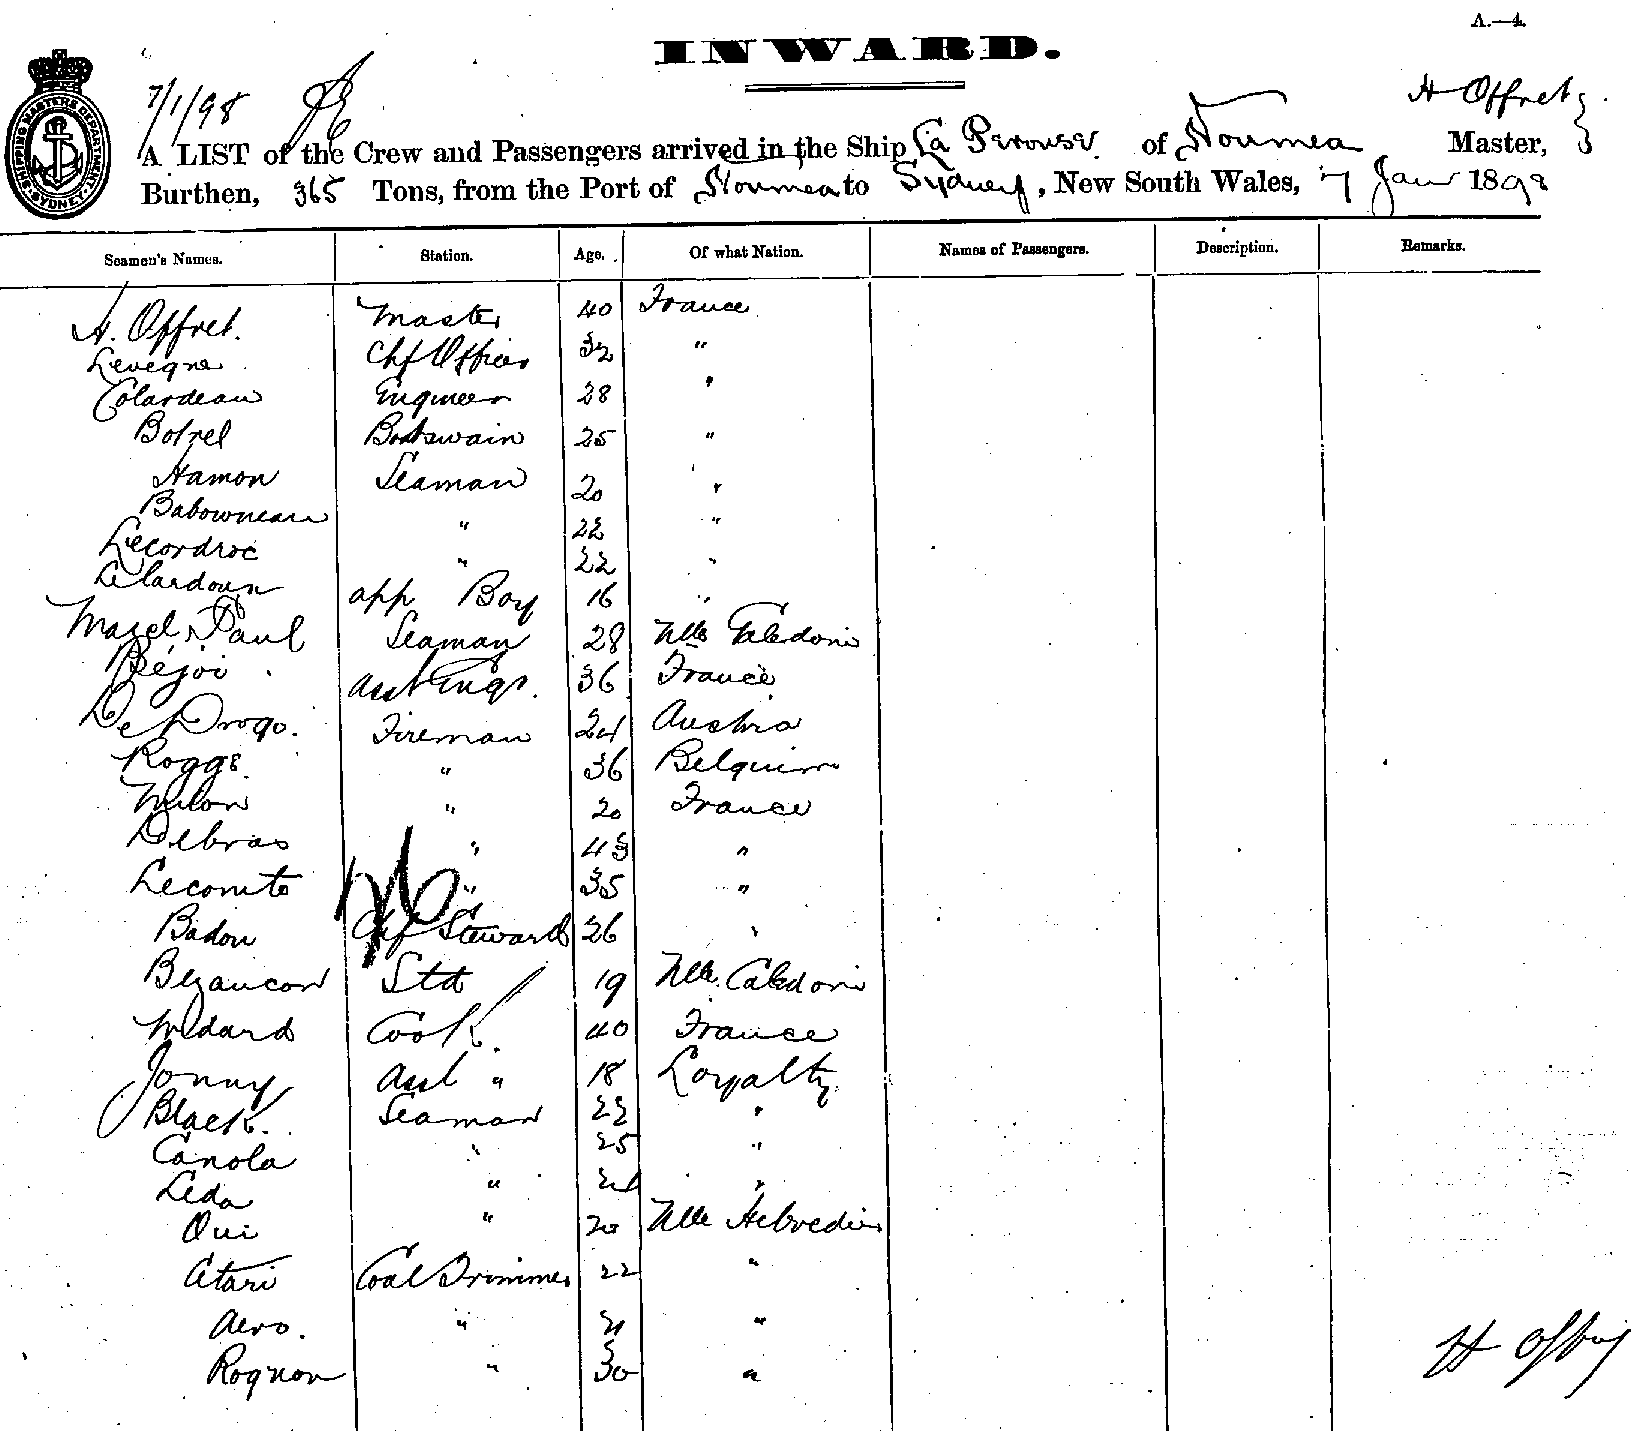 A.—4.
INWARD.
7/1/98
H Offret
A LIST of the Crew and Passengers arrived in the Ship La Perouse of Noumea Master,
Burthen, 365 Tons, from the Port of Noumea to Sydney, New South Wales, 7 Jany 1898
SHIPPING MASTERS DEPARTMENT SYDNEY
Seamen's Names. Station. Age. Of what Nation. Names of Passengers. Description. Remarks.
H. Offret. Master 40 France
Levegne Chf Officer 32 "
Colardeau Engineer 28 "
Botrel Boatswain 25 "
Hamon Seaman 20 "
Babowneau " 22 "
Lecordroc " 22 "
app Boy 16 "
Mazel, Paul Seaman 28 Nlle Caledonie
Béjoi Asst Engr. 36 France
De Drogo. Fireman 24 Austria
Roggs " 36 Belguim
Milon " 20 France
Debras " 43 "
Lecomte " 35 "
Badou Chf Steward 26 "
Bezancon Std 19 Nlle Caledonie
Medard Cook 40 France
Jonny Asst " 18 Loyalty
Black. Seaman 22 "
Canola " 25 "
Leda " 21 "
Oui " 20 Nlle Hebredies
Atari Coal Trimmer 22 "
Aero. " 21 "
Rognon " 30 "
H Offret